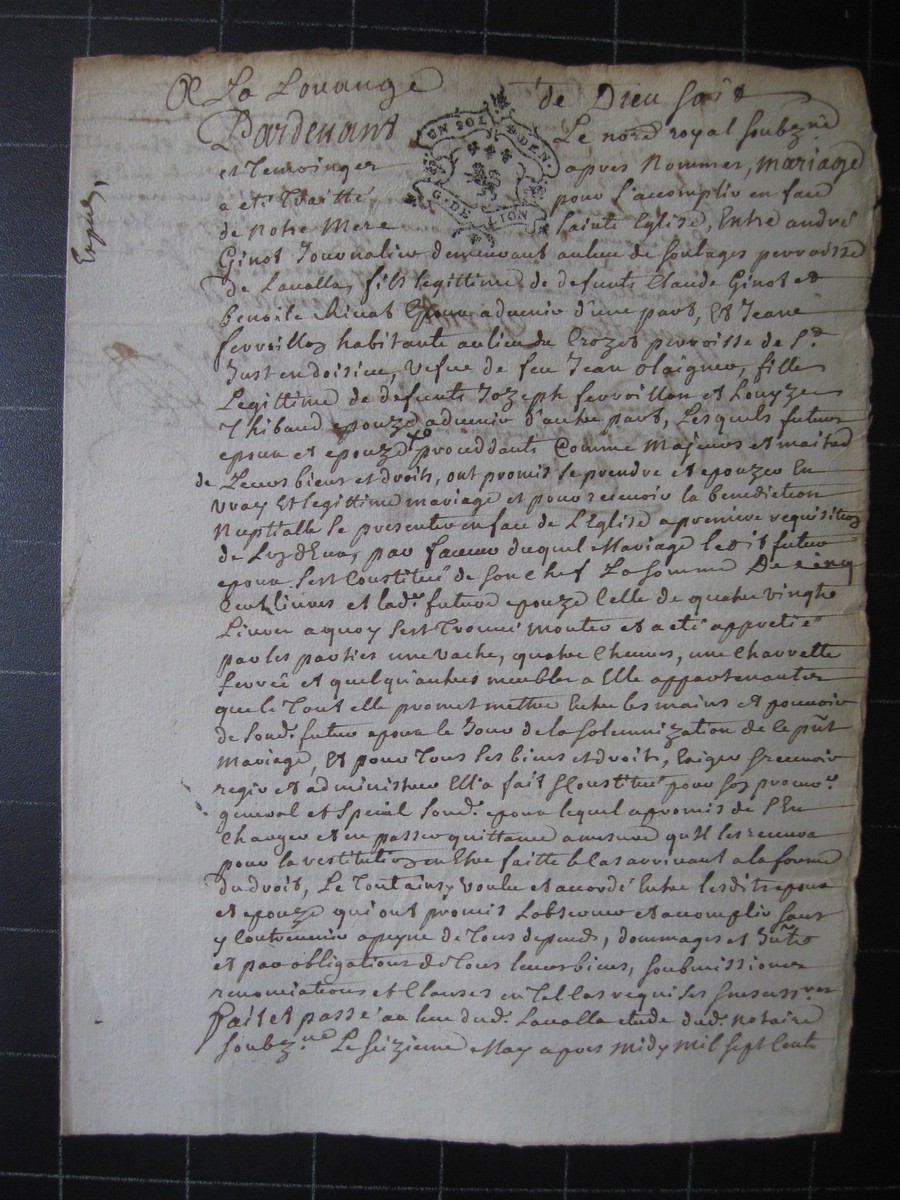 A La Louange de Dieu soit
Pardevant Le nore royal soubzne
UN SOL DEN.
G. DE LION
et Temoings apres Nommes, mariage
a ete Traitté, pour L'accomplir en face
de notre Mere Sainte Eglise, Entre andré
Expué,
Ginot Journalier demeurant au lieu de Soulages parroisse
de Lavalla, fils legittime de defunts Claude Ginot et
benoite Rivat Epoux advenir d'une part, Et Jeane
ferroillon habitante au lieu du Crozet parroisse de St
Just en doisieu, Vefue de feu Jean olaignier, fille
Legittime de defunts Jozeph ferroillon et Louyze
Thibaud epouze advenir d'autre part, Lesquels futurs
epoux et epouze proceddants Comme Majeurs et maitres
de Leurs biens et droits, ont promis se prendre et epouzer En
vray Et legittime mariage et pour recevoir la benediction
Nuptialle se presenter en face de L'Eglise a premiere requisition
de L'uz d'Eux, par faveur duquel Mariage ledit futur
epoux s'est Constitué de son chef La somme De cinq
cent livres et lad. future epouze Celle de quatre vingts
Livres a quoy s'est Trouvé monter et a eté appretié
par les parties une vache, quatre Chevres, une Charrette
ferrée et quelqu'autres meubles a Elle appartenantes
que le Tout elle promet mettre Entre les mains et pouvoir
de Sond. futur epoux le Jour de la solemnization de le pnt
Mariage, Et pour Tous ses biens et droits, Exiger recevoir
regir et administrer Ell'a fait Constitué pour son procur.
general et Special Sond. epoux lequel a promis de s'En
Charger et en passer quittance a mesure qu'Il les recevra
pour la restitution en Etre faitte le cas arrivant a la forme
du droit, Le Tout ainsy Voulu et accordé Entre lesdits epoux
et epouze qui ont promis L'observer et accomplir sans
y Contrevenir a peyne de Tous depends, dommages et Intts
et par obligations de Tous leurs biens, soubmissiones
renonciations et Clauses en Tel Cas requises
fait et passé au lieu dud. Lavalla etude dud. notaire
Soubzne Le seizieme May apres midy mil sept Cents